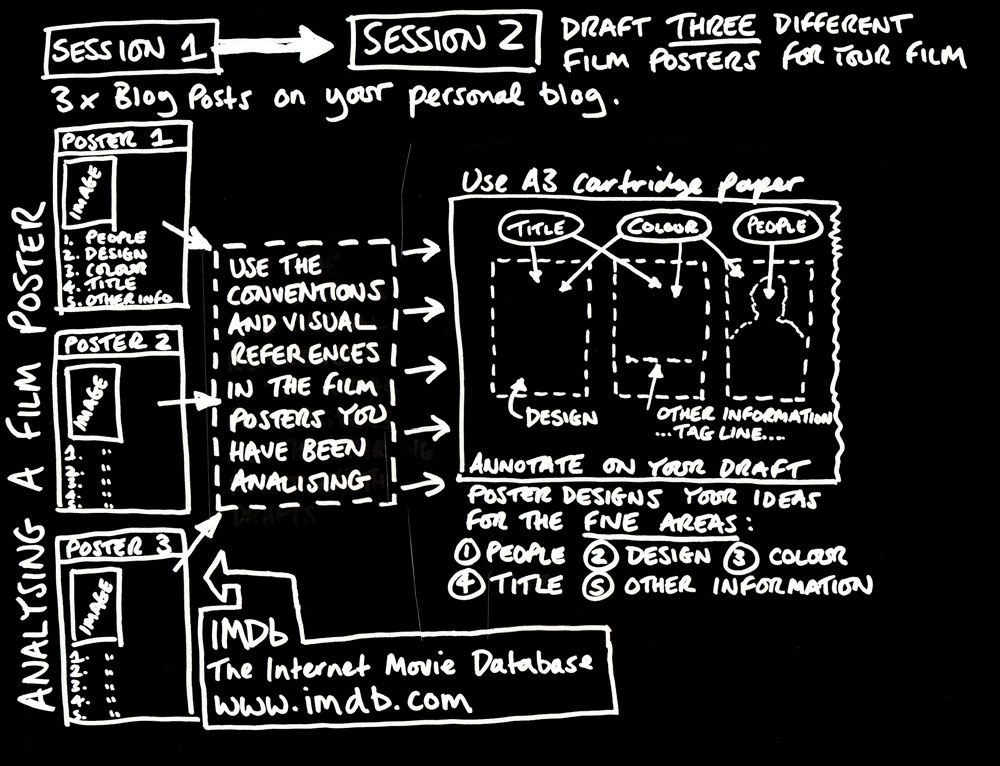 SESSION 1
SESSION 2
DRAFT THREE DIFFERENT
FILM POSTERS FOR YOUR FILM
3x Blog Posts on your personal blog.
ANALYSING A FILM POSTER
POSTER 1
IMAGE
1. PEOPLE
2. DESIGN
3. COLOUR
4. TITLE
5. OTHER INFO
POSTER 2
IMAGE
1. "
2. "
3. "
4. "
5. "
POSTER 3
IMAGE
1. "
2. "
3. "
4. "
5. "
USE THE
CONVENTIONS
AND VISUAL
REFERENCES
IN THE FILM
POSTERS YOU
HAVE BEEN
ANALISING
IMDb
The Internet Movie Database
www.imdb.com
Use A3 cartridge paper
TITLE
COLOUR
PEOPLE
DESIGN
OTHER INFORMATION
...TAG LINE....
ANNOTATE ON YOUR DRAFT
POSTER DESIGNS YOUR IDEAS
FOR THE FIVE AREAS:
1 PEOPLE 2 DESIGN 3 COLOUR
4 TITLE 5 OTHER INFORMATION